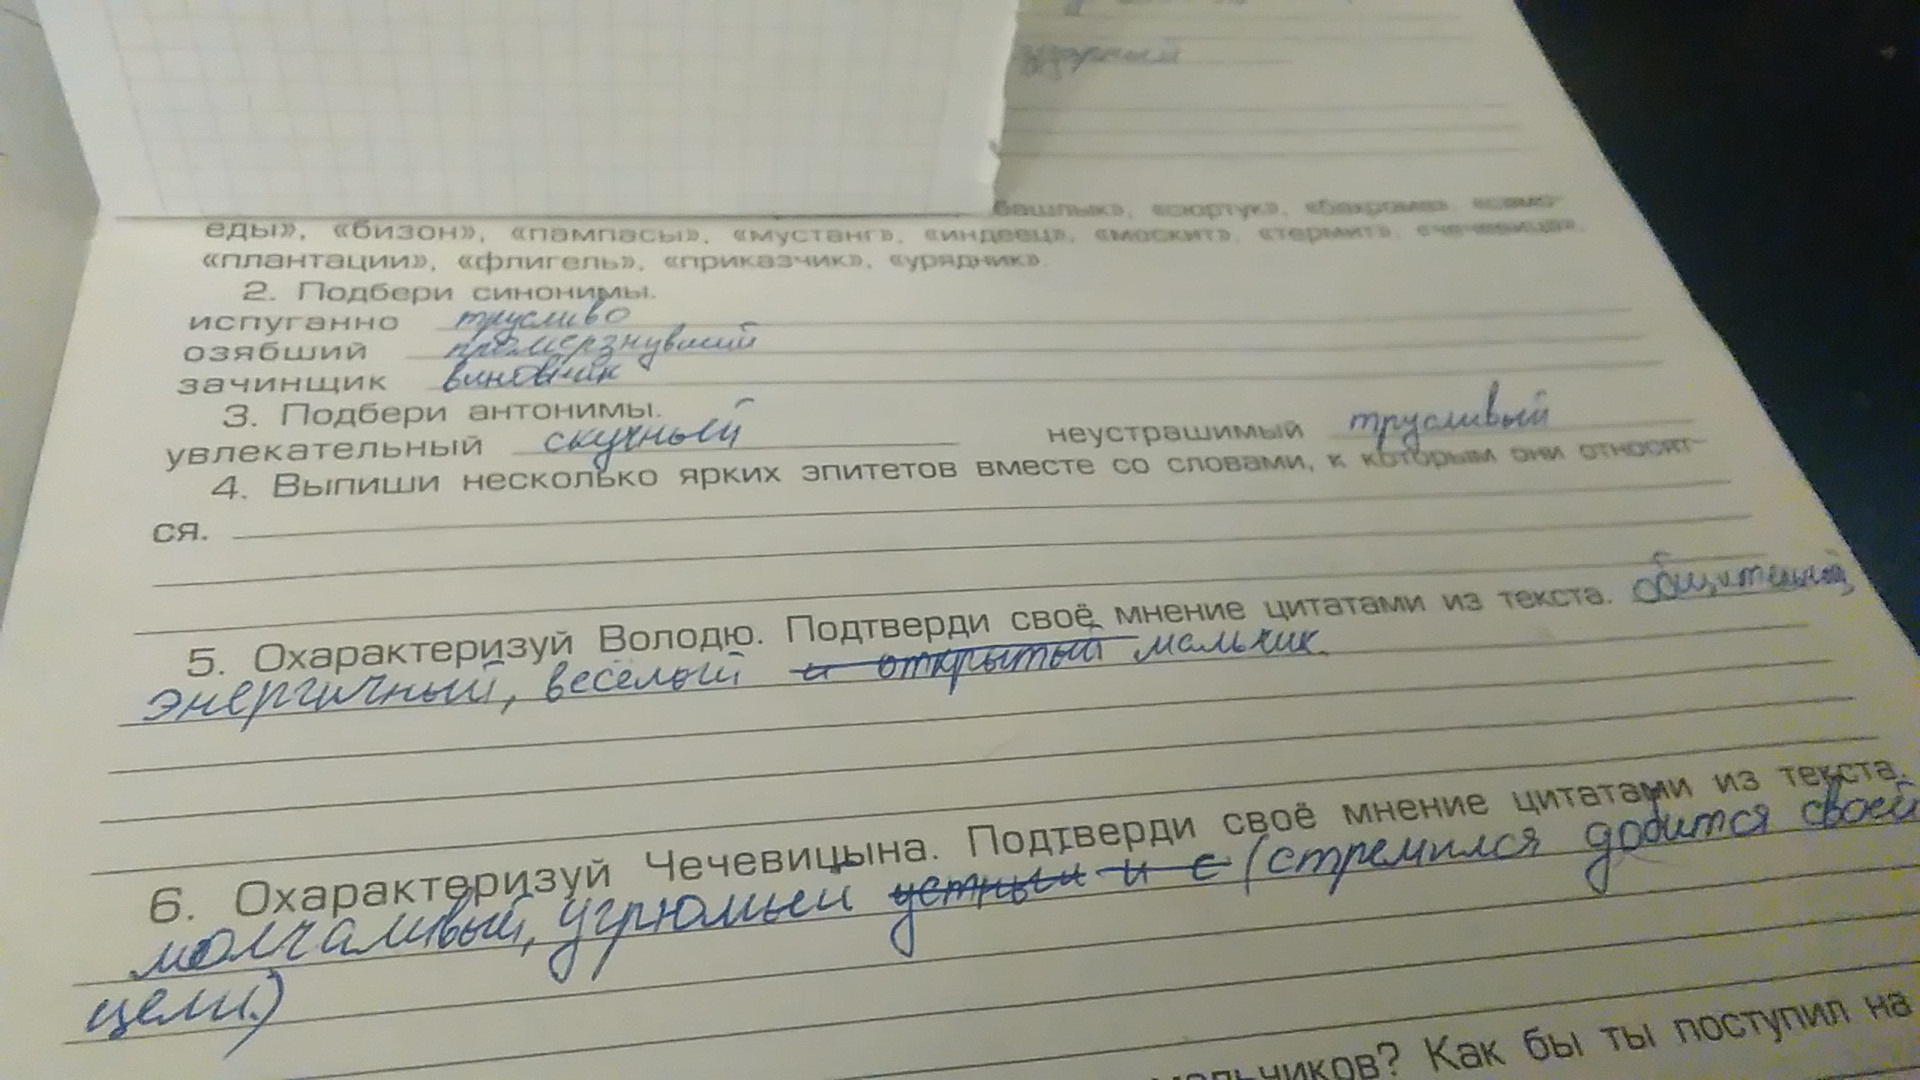 башлык», «сюртук», «бахрома», «само-
еды», «бизон», «пампасы», «мустанг», «индеец», «москит», «термит», «чечевица»,
«плантации», «флигель», «приказчик», «урядник».
2. Подбери синонимы.
испуганно трусливо
озябший промёрзнувший
зачинщик виновник
3. Подбери антонимы.
увлекательный скучный неустрашимый трусливый
4. Выпиши несколько ярких эпитетов вместе со словами, к которым они относят-
ся.
5. Охарактеризуй Володю. Подтверди своё мнение цитатами из текста. общительный,
энергичный, весёлый и открытый мальчик.
6. Охарактеризуй Чечевицына. Подтверди своё мнение цитатами из текста.
молчаливый, угрюмый и с (стремился добится своей
цели.)
мальчиков? Как бы ты поступил на